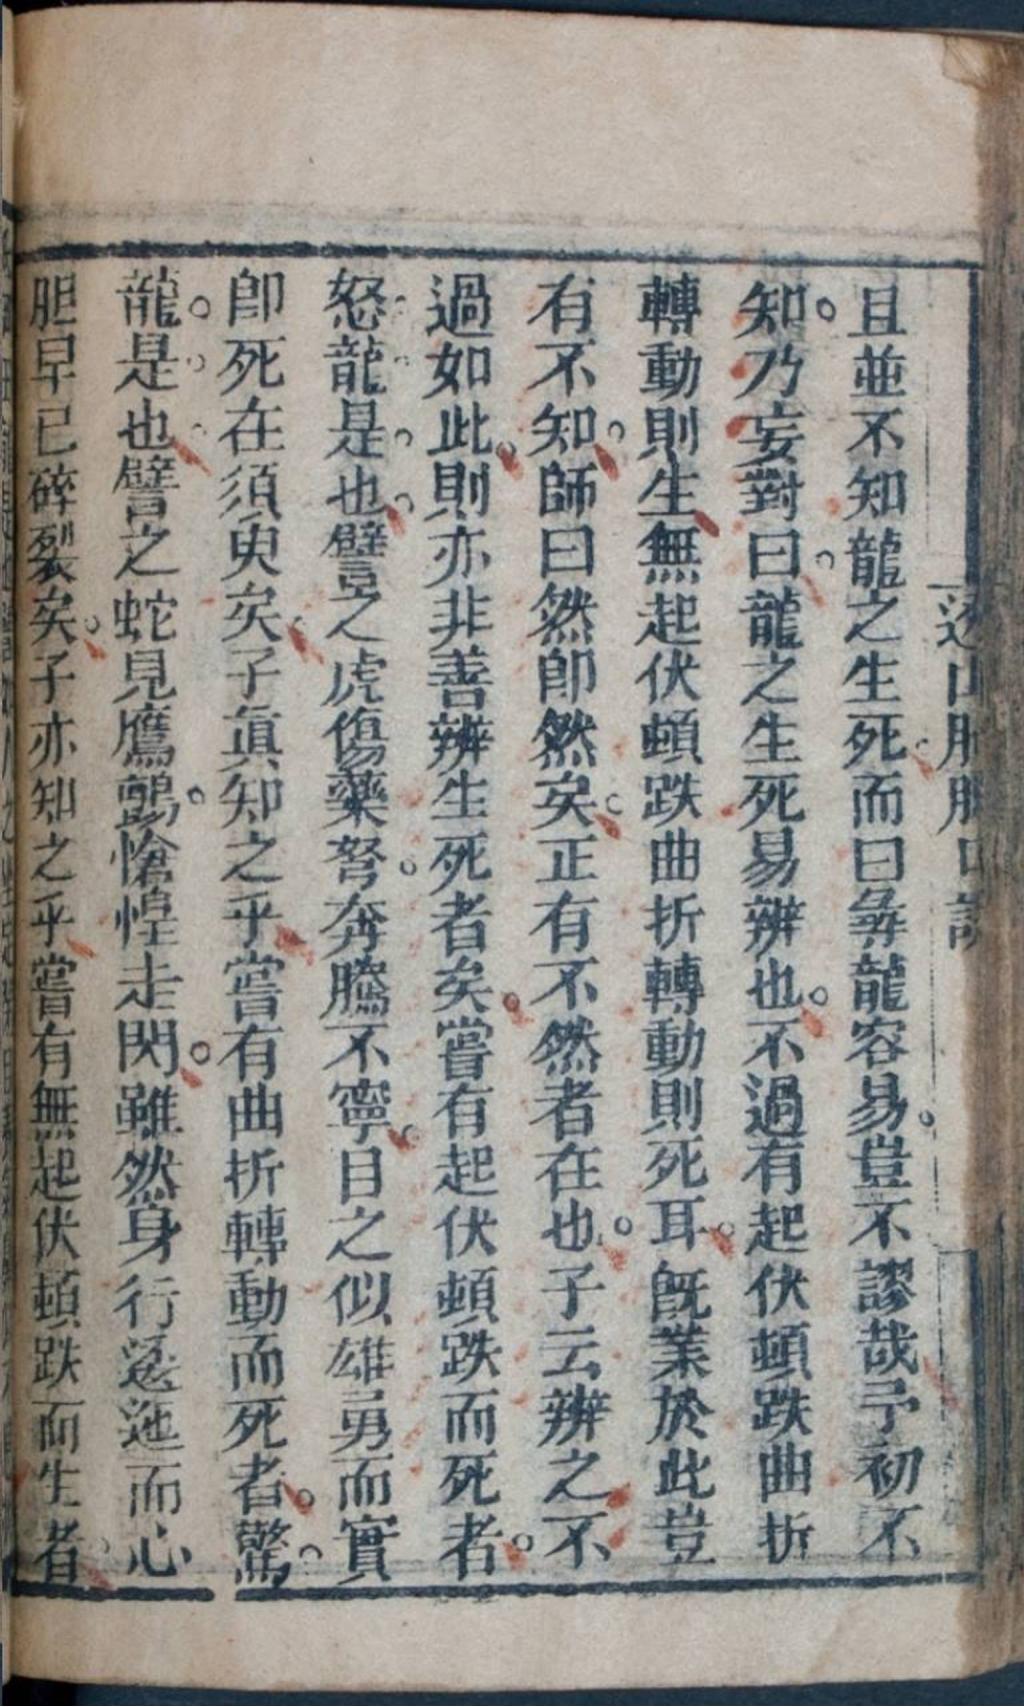 且並不知龍之生死而曰彝龍容易豈不謬哉予初不
知乃妄對曰龍之生死易辨也不過有起伏頓跌曲折
轉動則生無起伏頓跌曲折轉動則死耳旣業於此豈
有不知師曰然即然矣正有不然者在也子云辨之不
過如此則亦非善辨生死者矣嘗有起伏頓跌而死者
怒龍是也譬之虎傷藥弩奔騰不寧目之似雄勇而實
卽死在須臾矣子真知之乎嘗有曲折轉動而死者驚
龍是也譬之蛇見鷹鸇愴惶走閃雖然身行逶迤而心
胆早已碎裂矣子亦知之乎嘗有無起伏頓跌而生者